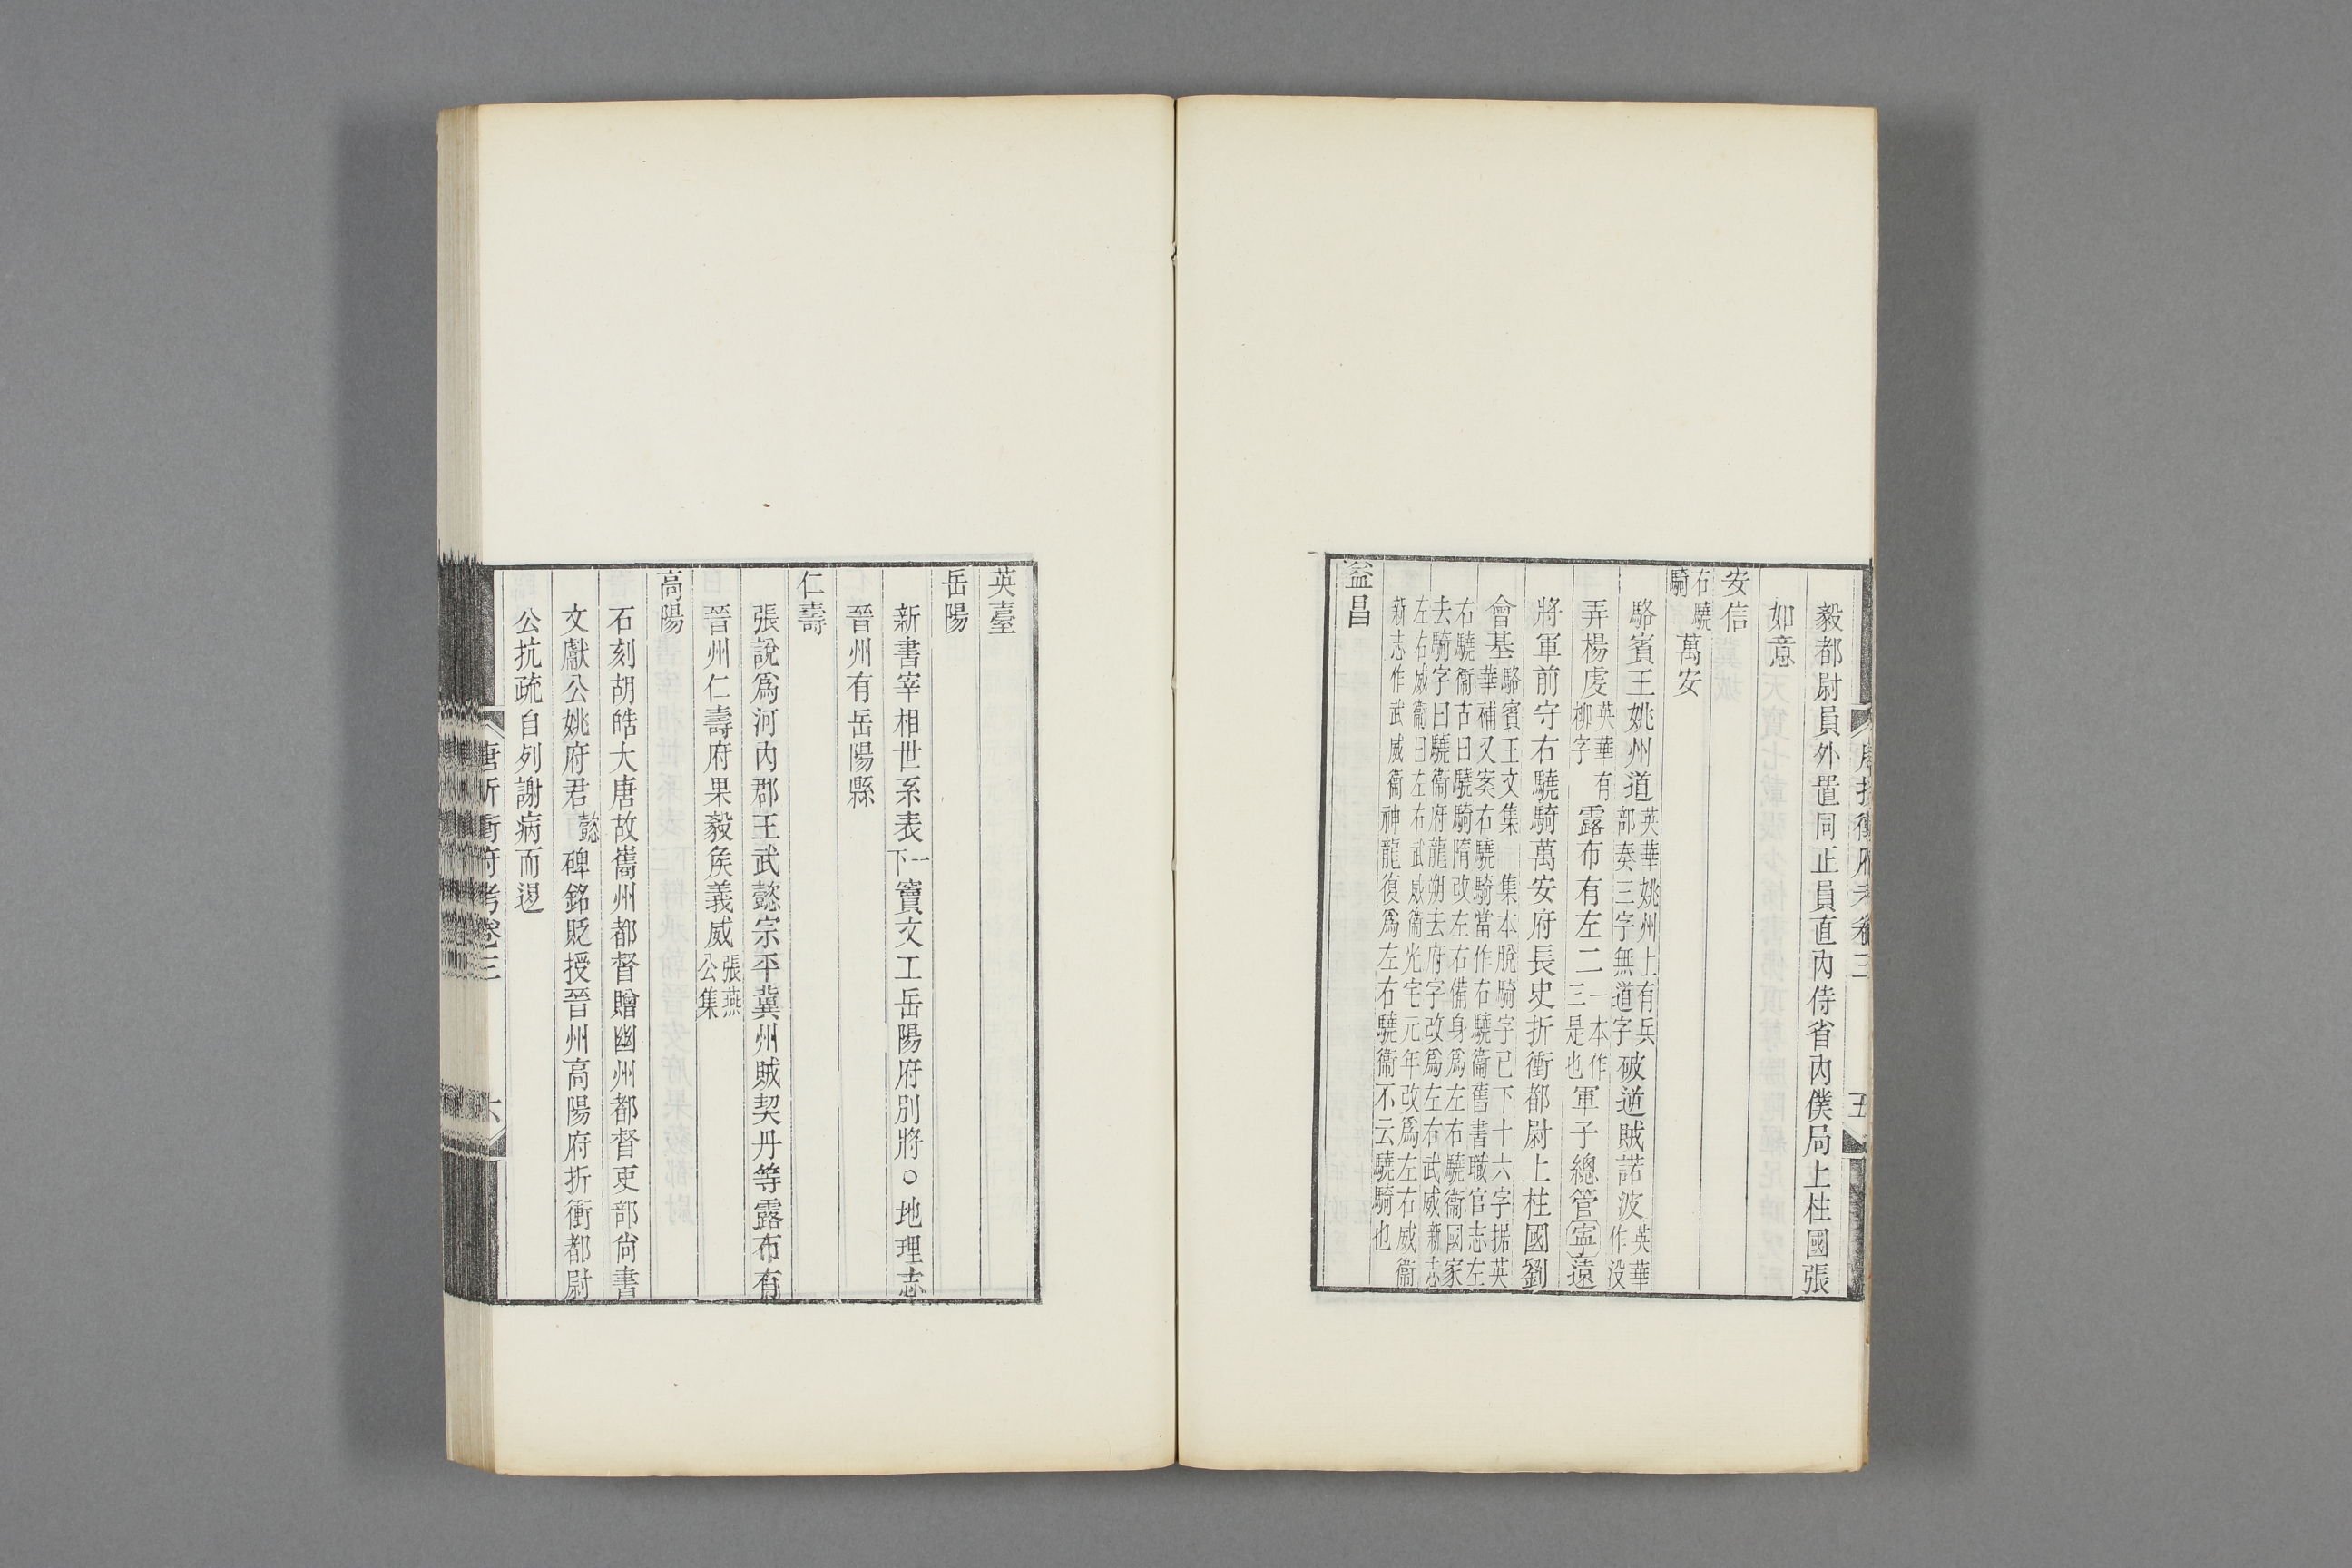 毅都尉員外置同正員直內侍省內僕局上柱國張
如意
安信
右驍騎萬安
駱賓王姚州道英華姚州上有兵部奏三字無道字破逆賊諾波英華作沒
弄楊虔英華有柳字露布有左二一本作三是也軍子總管寍遠
將軍前守右驍騎萬安府長史折衝都尉上柱國劉
會基駱賓王文集集本脫騎字已下十六字據英華補又案右驍騎當作右驍衞舊書職官志左
右驍衞古曰驍騎隋改左右備身爲左右驍衞國家去騎字曰驍衞府龍朔去府字改爲左右武威新志
左右威衞曰左右武威衞光宅元年改爲左右威衞新志作武威衞神龍復爲左右驍衞不云驍騎也
益昌
英臺
岳陽
新書宰相世系表一下竇文工岳陽府別將○地理志
晉州有岳陽縣
仁壽
張說爲河內郡王武懿宗平冀州賊契丹等露布有
晉州仁壽府果毅矦義威張燕公集
高陽
石刻胡皓大唐故巂州都督贈幽州都督吏部尙書
文獻公姚府君懿碑銘貶授晉州高陽府折衝都尉
公抗疏自列謝病而退
唐折衝府考卷三
六